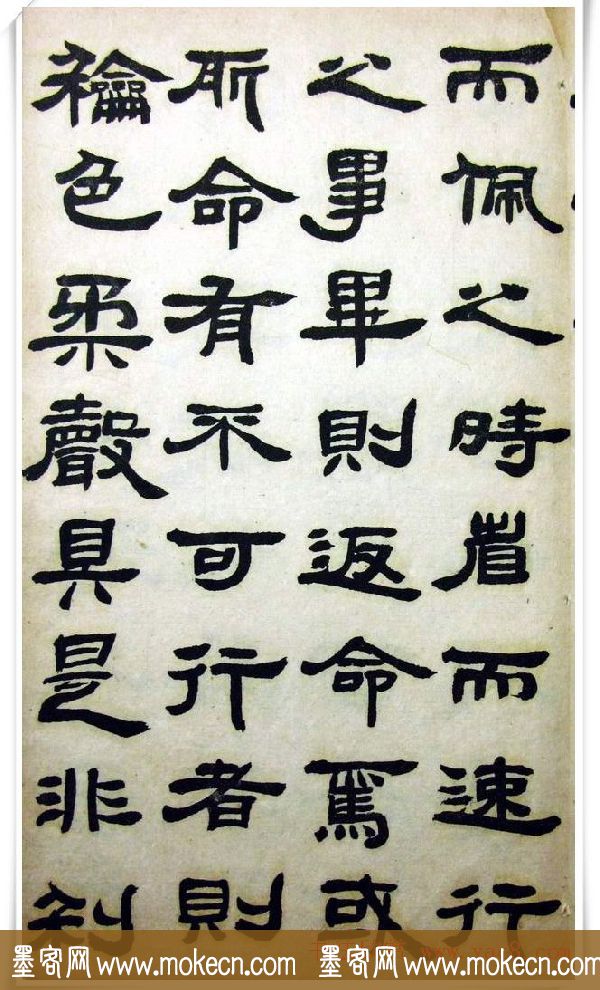 而佩之時省而速行
之事畢則返命焉或
所命有不可行者則
龢色柔聲具是非利
墨客网 www.mokecn.com 墨客网 www.mokecn.com